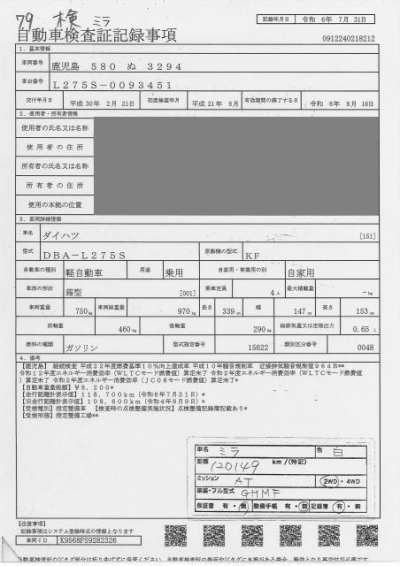 79 検 ミラ
記録年月日 令和 6年 7月 31日
自動車検査証記録事項
0912240218212
1. 基本情報
車両番号 鹿児島 580 ぬ 3294
車台番号 L275S-0093451
交付年月日 平成 30年 2月 21日 初度検査年月 平成 21年 8月 有効期間の満了する日 令和 8年 8月 16日
2. 使用者・所有者情報
使用者の氏名又は名称
使用者の住所
所有者の氏名又は名称
所有者の住所
使用の本拠の位置
3. 車両詳細情報
車名 ダイハツ [151]
型式 DBA-L275S 原動機の型式 KF
自動車の種別 軽自動車 用途 乗用 自家用・事業用の別 自家用
車体の形状 箱型 [001] 乗車定員 4人 最大積載量 -kg
車両重量 750kg 車両総重量 970kg 長さ 339cm 幅 147cm 高さ 153cm
前軸重 460kg 後軸重 290kg 総排気量又は定格出力 0.65 L
燃料の種類 ガソリン 型式指定番号 15622 類別区分番号 0048
4. 備考
【鹿児島】 継続検査 平成22年度燃費基準10%向上達成車 平成10年騒音規制車 近接排気騒音規制値96dB**
令和12年度エネルギー消費効率(WLTCモード燃費値)算定未了 令和2年度エネルギー消費効率(WLTCモード燃費値
)算定未了 令和2年度エネルギー消費効率(JC08モード燃費値)算定未了*
【自動車重量税額】¥8,200*
【走行距離計表示値】118,700km(令和6年7月31日)*
【旧走行距離計表示値】108,600km(令和4年8月9日)*
【受検種別】指定整備車 【検査時の点検整備実施状況】点検整備記録簿記載あり*
【受検形態】指定整備工場**
車名 ミラ 色 白
距離 120149 km/(特記)
ミッション AT 2WD・4WD
車装・フル型式 GHMF
保証書 有・無 整備手帳 有・無 記録簿 有・無
【注意事項】
記載事項はシステム登録時点の情報となります
車両ID K9568FS9282326